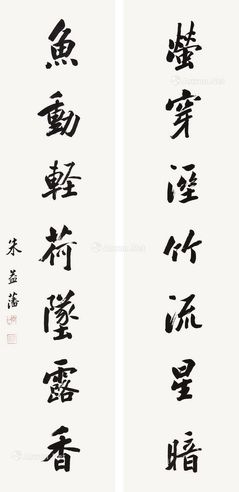 螢穿溼竹流星暗
魚動輕荷墜露香
朱益藩